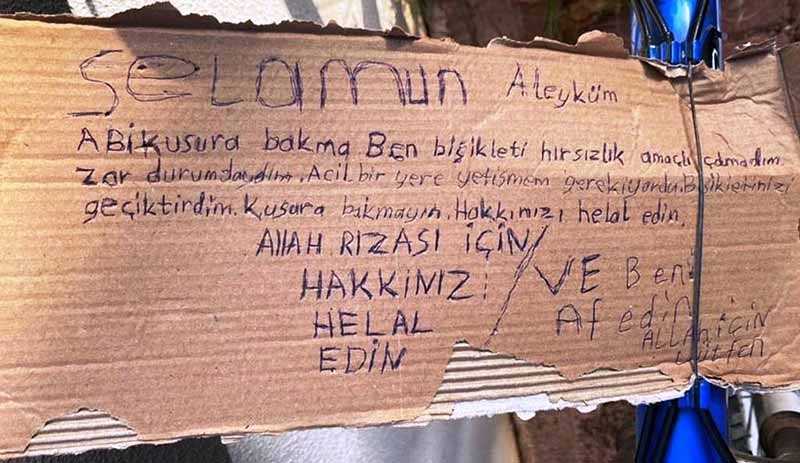 SELAMUN Aleyküm
ABİ KUSURA bakma BEn bişikleti hırsızlık amaçlı çalmadım.
Zor durumdaydım. Acil bir yere yetişmem gerekiyordu. Bisikletinizi
geçiktirdim. Kusara bakmayın. Hakkınızı helal edin.
ALLAH RIZASI İÇİN
HAKKINIZI
HELAL
EDİN
VE Beni
Af edin
ALLAH İÇİN
Lütfen